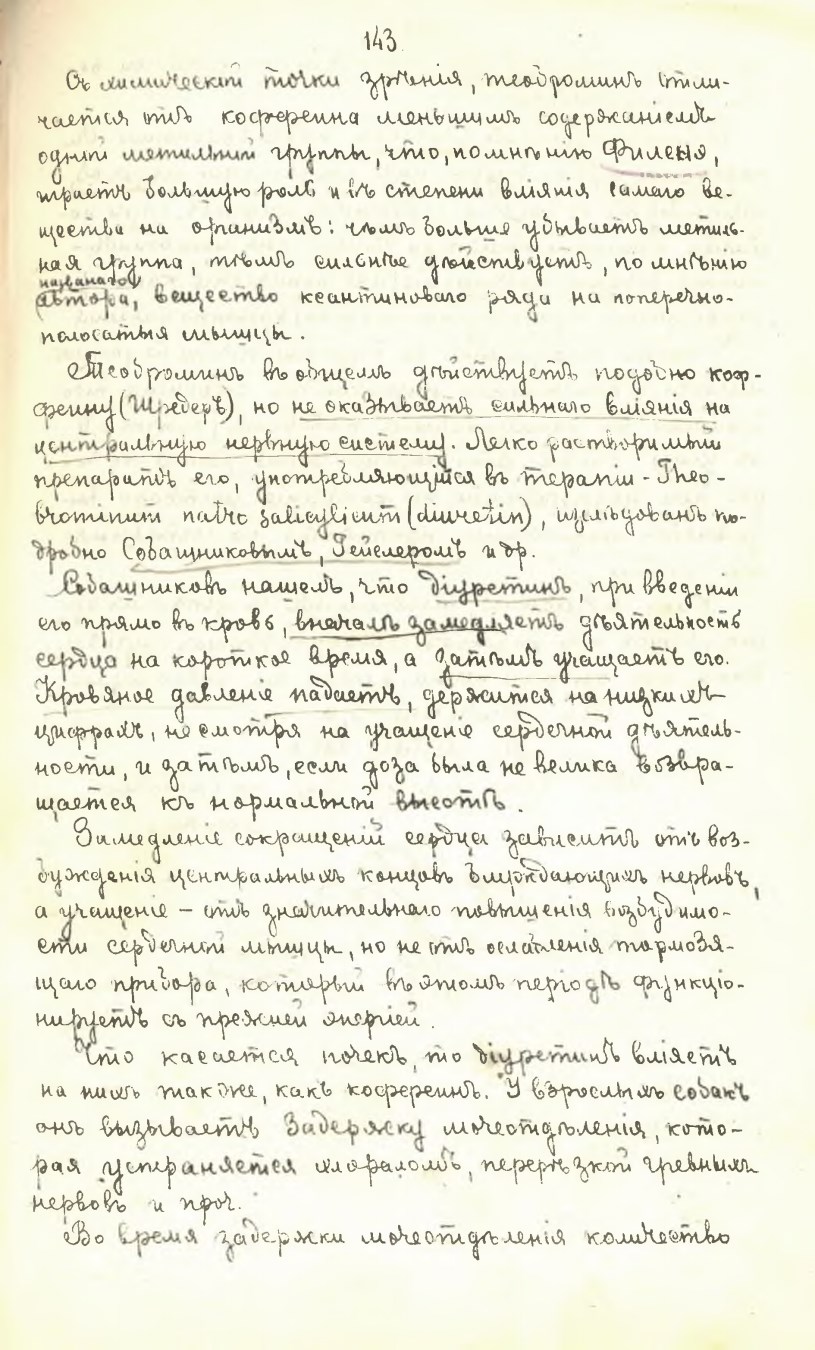 143
Съ химической точки зрѣнія, теобромин​ъ отли-
чается отъ кофеина меньшимъ содержаніемъ
одной метильной группы, что, по мнѣнію Филеня,
играетъ большую роль и въ степени вліянія самаго ве-
щества на организмъ: чѣмъ больше убываетъ метиль-
ная группа, тѣмъ сильнѣе дѣйствуетъ, по мнѣнію
названаго
автора, вещество ксантиноваго ряда на поперечно-
полосатыя мышцы.
Теоброминъ въ общемъ дѣйствуетъ подобно коф-
феину (Шредеръ), но не оказываетъ сильнаго вліянія на
центральную нервную систему. Легко растворимый
препаратъ его, употребляющійся въ терапіи - Theo-
brominum natrc salicylicum (diuretin), изслѣдованъ по-
дробно Собащниковымъ, Гейслеромъ и др.
Собащниковъ нашелъ, что діуретинъ, при введеніи
его прямо въ кровь, вначалѣ замедляетъ дѣятельность
сердца на короткое время, а затѣмъ учащаетъ его.
Кровяное давленіе падаетъ, держится на низкихъ
цифрахъ, не смотря на учащеніе сердечной дѣятель-
ности, и затѣмъ, если доза была не велика возвра-
щается къ нормальной высотѣ.
Замедленіе сокращеній сердца зависитъ отъ воз-
бужденія центральныхъ концовъ блуждающихъ нервовъ,
а учащеніе – отъ значительнаго повышенія возбудимо-
сти сердечной мышцы, но не отъ ослабленія тормозя-
щаго прибора, который въ этомъ періодѣ функціо-
нируетъ съ прежней энергіей.
Что касается почекъ, то діуретинъ вліяетъ
на нихъ также, какъ кофеинъ. У взрослыхъ собакъ
онъ вызываетъ задержку мочеотдѣленія, кото-
рая устраняется хлораломъ, перерѣзкой чревныхъ
нервовъ и проч.
Во время задержки мочеотдѣленія количество